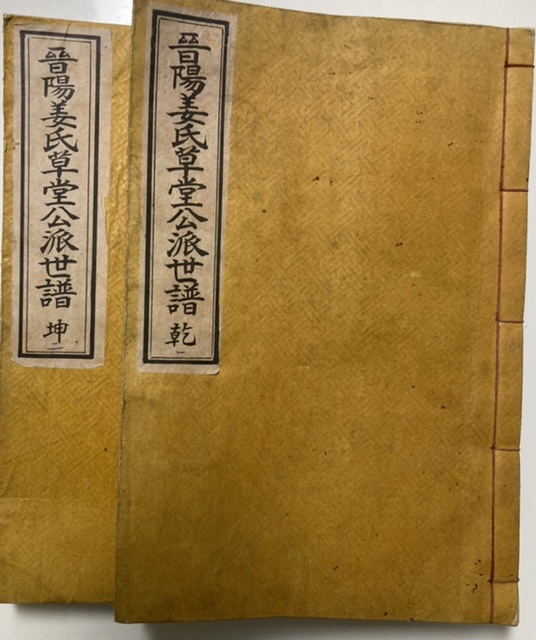 晉陽姜氏草堂公派世譜 乾 一
晉陽姜氏草堂公派世譜 坤 二